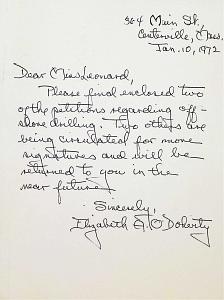 364 Main St.,
Centerville, Mass.
Jan. 10, 1972
Dear Miss Leonard,
Please find enclosed two
of the petitions regarding off-
shore drilling. Two others are
being circulated for more
signatures and will be
returned to you in the
near future.
Sincerely,
Elizabeth A. O'Doherty